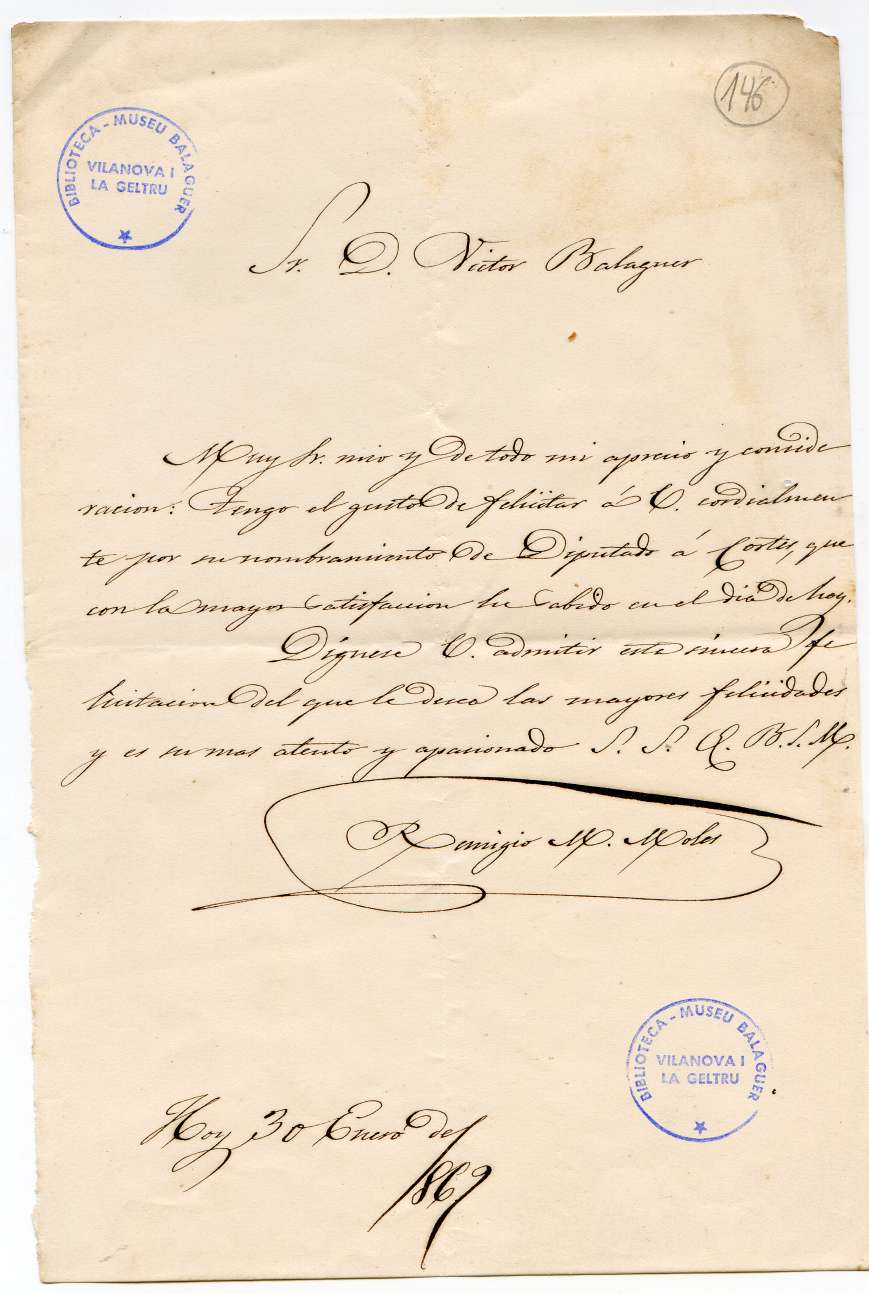 146
BIBLIOTECA - MUSEU BALAGUER
VILANOVA I
LA GELTRU
Sr. D. Victor Balaguer
Muy Sr. mio y de todo mi aprecio y conside
racion: Tengo el gusto de felicitar á V. cordialmen
te por su nombramiento de Diputado á Cortes, que
con la mayor satisfaccion he sabido en el dia de hoy.
Dígnese V. admitir esta sincera fe
licitacion del que le desea las mayores felicidades
y es su mas atento y apasionado S. S. Q. B. S. M.
Remigio M. Moles
BIBLIOTECA - MUSEU BALAGUER
VILANOVA I
LA GELTRU
Hoy 30 Enero de
1869